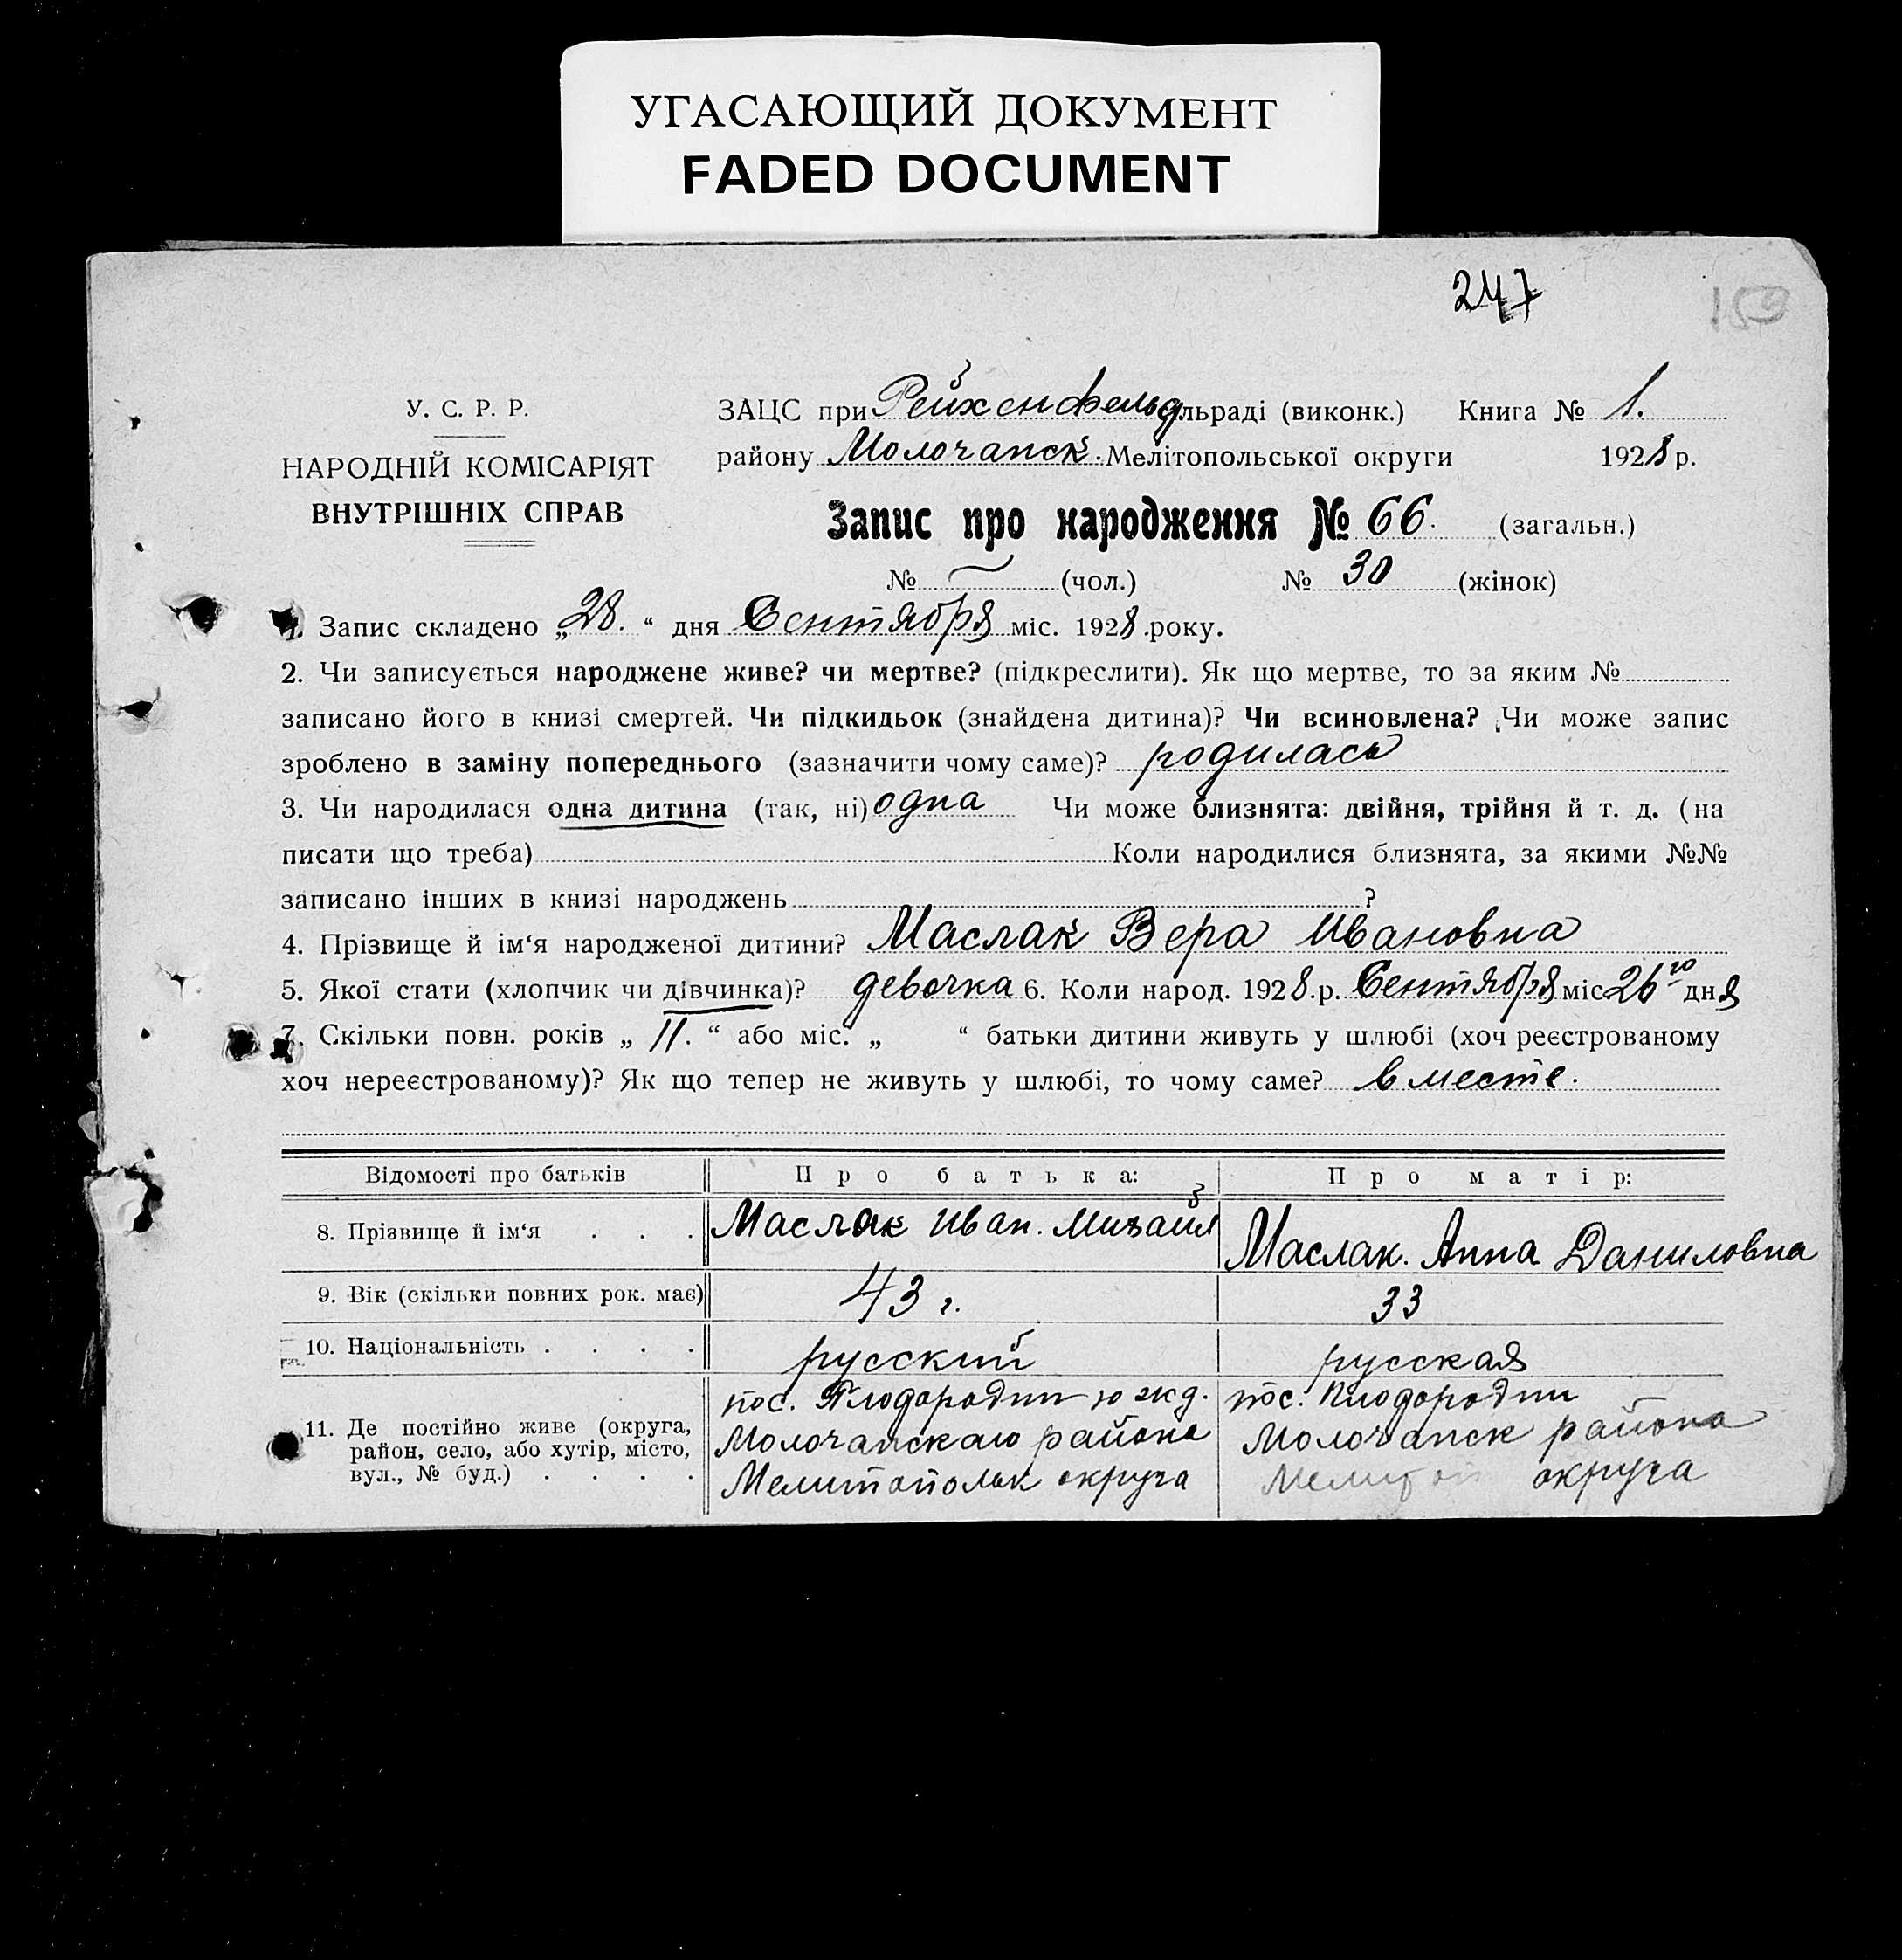 УГАСАЮЩИЙ ДОКУМЕНТ
FADED DOCUMENT
247
159
У. С. Р. Р.
НАРОДНІЙ КОМІСАРІЯТ
ВНУТРІШНІХ СПРАВ
ЗАЦС при Рейхенфельд льраді (виконк.) Книга № 1.
району Молочанск. Мелітопольської округи 1928 р.
Запис про народження № 66. (загальн.)
№ — (чол.) № 30 (жінок)
1. Запис складено „28." дня Сентября міс. 1928 року.
2. Чи записується народжене живе? чи мертве? (підкреслити). Як що мертве, то за яким №
записано його в книзі смертей. Чи підкидьок (знайдена дитина)? Чи всиновлена? Чи може запис
зроблено в заміну попереднього (зазначити чому саме)? родилась
3. Чи народилася одна дитина (так, ні) одна Чи може близнята: двійня, трійня й т. д. (на
писати що треба) Коли народилися близнята, за якими №№
записано інших в книзі народжень ?
4. Прізвище й ім'я народженої дитини? Маслак Вера Ивановна
5. Якої стати (хлопчик чи дівчинка)? девочка 6. Коли народ. 1928 р. Сентября міс 26го дня
7. Скільки повн. років „ 11. " або міс. „ " батьки дитини живуть у шлюбі (хоч реєстрованому
хоч нереєстрованому)? Як що тепер не живуть у шлюбі, то чому саме? вместе.
Відомості про батьків Про батька: Про матір:
8. Прізвище й ім'я . . . Маслак Иван. Михайл Маслак. Анна Даниловна
9. Вік (скільки повних рок. має) 43 г. 33
10. Національність . . . . русский русская
11. Де постійно живе (округа, район, село, або хутір, місто, вул., № буд.) . . . .
пос. Плодородин ю жд. Молочанскаго района Мелитополья округа
пос. Плодородин Молочанск района Мелитоп округа